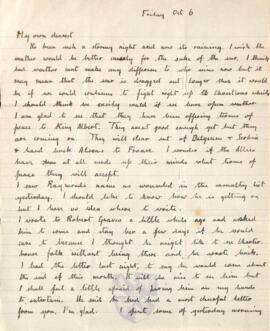 Friday Oct 6
My own dearest
It's been such a stormy night and now its raining. I wish the
weather would be better merely for the sake of the war. I think
bad weather wont make any difference to who wins now but it
may mean that the war is dragged out longer than it would
be if we could continue to fight right up to Christmas which
I should think we easily could if we have open weather
I am glad to see that they have been offering terms of
peace to King Albert. They arent good enough yet but they
are coming on. They will clear out of Belgium & Serbia
& hand back Alsace to France. I wonder if the Allies
have at all made up their minds what terms of
peace they will accept.
I saw Raymonds name as wounded in the casualty list
yesterday. I should like to know how he is getting on
but I have no idea where to write.
I wrote to Robert Graves a little while ago and asked
him to come and stay for a few days if he would
care to because I thought he might like to see Charter
house folk without being there and he wrote back.
I had the letter last night, to say he would come about
the end of this month. I will be nice to see him but
I shall feel a little afraid of having him on my hands
to entertain. He said he had had a most cheerful letter
from you, I'm glad. I spent some of yesterday morning